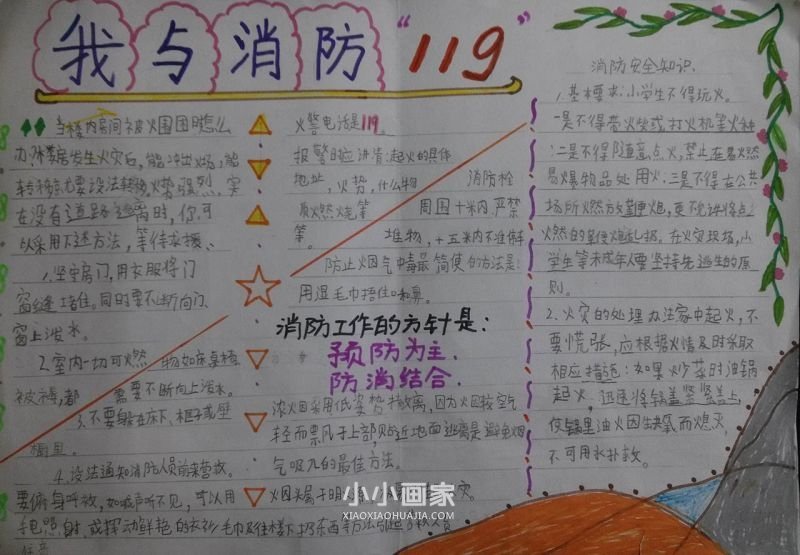 我与消防“119”
当楼内房间被火围困时怎么
办:
在没有道路逃离时,你可
以采用下述方法,等待求援、
1.坚守房门,用衣服将门
窗缝堵住。同时要不断向门、
窗上泼水。
2.室内一切可燃物如床桌椅
被褥,都需要不断向上泼水。
3.不要躲在床下、柜子或壁
橱里。
4.设法通知消防人员前来营救。
要俯身呼救,如喊声听不见,可以用
手电照射,或挥动鲜艳的衣衫毛巾及往楼下扔东西等方法引起
火警电话是119
报警时应讲清:起火的具体
地址,火势,什么物
质燃烧等
等。
消防栓
周围十米内,严禁
堆物,十五米内不准停
防止烟气中毒最简便的方法是:
用湿毛巾捂住口和鼻。
消防工作的方针是:
预防为主.
防消结合.
浓烟采用低姿势撤离,因为火因较空气
轻而飘于上部,贴近地面逃离是避免烟
气吸入的最佳方法。
烟头
小小画家
XIAOXIAOHUAJIA.COM
消防安全知识.
1.基本要求:小学生不得玩火。
一是不得带火柴或打火机等火种
:二是不得随意点火,禁止在易燃
易爆物品处用火:三是不得在公共
场所燃放鞭炮,更不允许将点
燃的鞭炮乱扔。在火灾现场,小
学生等未成年人要坚持先逃生的原
则。
2.火灾的处理办法家中起火,不
要慌张,应根据火情及时采取
相应措施:如果炒菜时油锅
起火,迅速将锅盖紧紧盖上,
使锅里油火因缺氧而熄灭,
不可用水扑救。